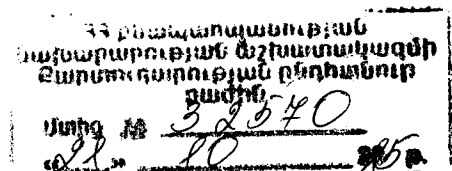 ՀՀ բնապահպանության
նախարարության աշխատակազմի
Քարտուղարության ընդհանուր
բաժին
Մտից № 32570
«21» 10 2015 թ.